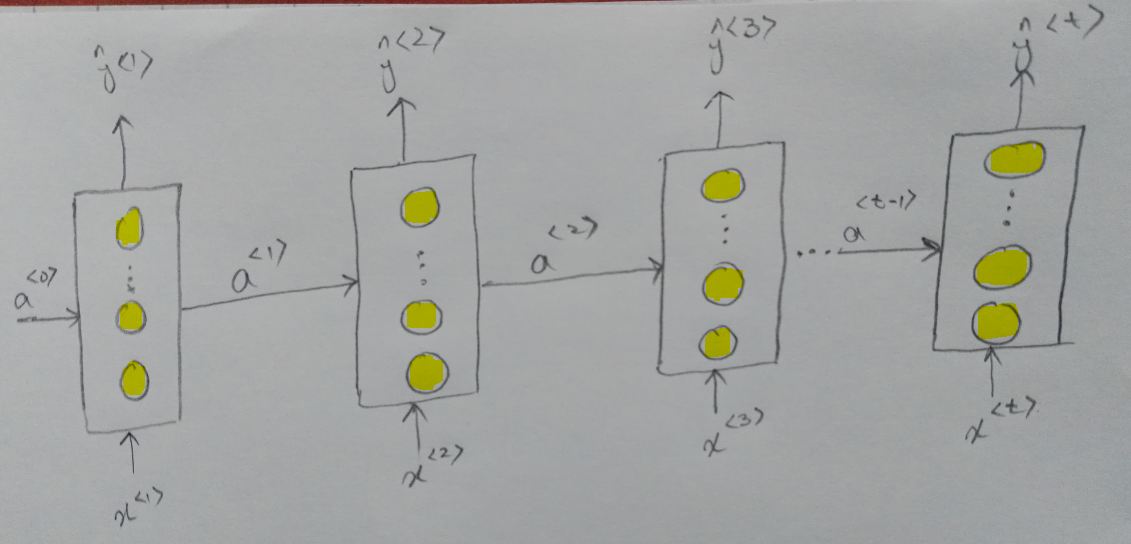 ŷ<1> ŷ<2> ŷ<3> ŷ<t>
a<0> a<1> a<2> .... a<t-1>
x<1> x<2> x<3> x<t>